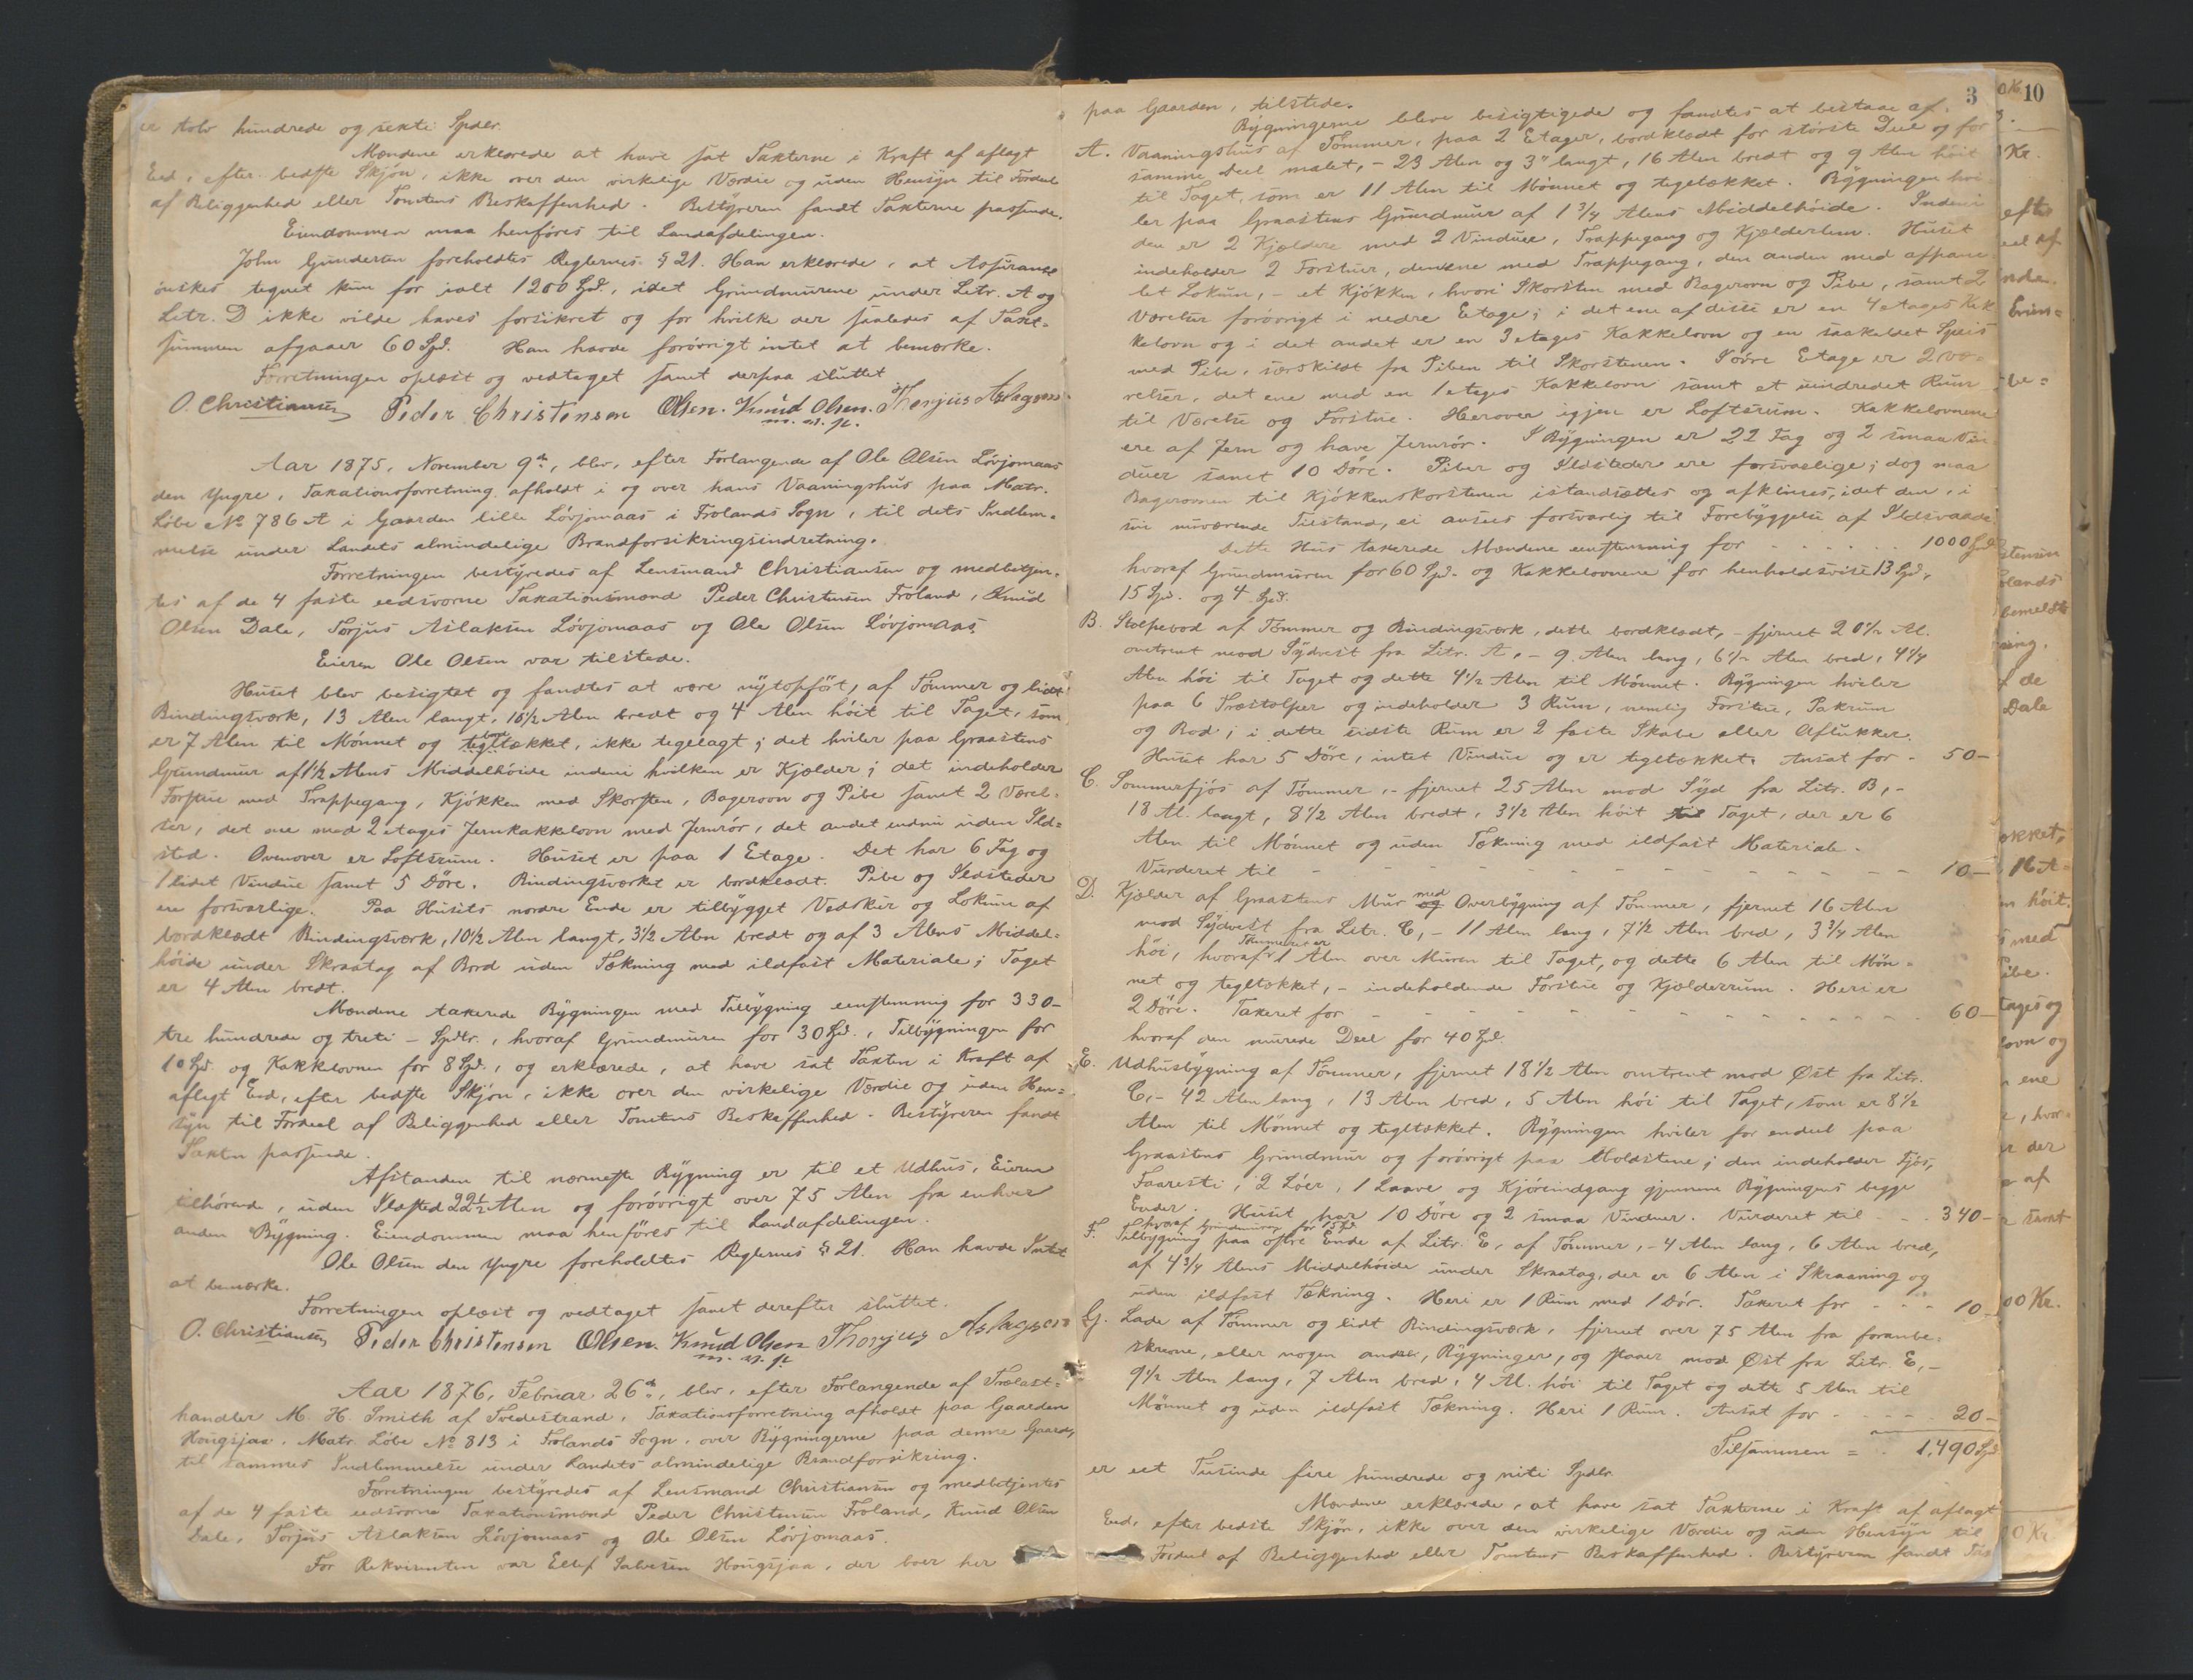 er tolv hundrede og sexti Spdlr.
Mændene erklærede at have sat Taxterne i Kraft af aflagt
Eed, efter bedste Skjøn, ikke over den virkelige Værdie og uden Hensyn til Fordeel
af Beliggenhed eller Tomtens Beskaffenhed. Bestyreren fandt Taxterne passende.
Eiendommen maa henføres til Landafdelingen.
John Gundersen foreholdtes Reglernes § 21. Han erklærede, at Assurance
ønskes tegnet kun for ialt 1200 Spd., idet Grundmurene under Litr. A og
Litr. D ikke vilde haves forsikret og for hvilke der saaledes af Taxt-
summen afgaaer 60 Spd. Han havde forøvrigt intet at bemærke.
Forretningen oplæst og vedtaget samt derpaa sluttet
O. Christiansen Peder Christensen Olsen. Knud Olsen. Thorjus Aslagsen
m. p. p.
Aar 1875, November 9de, blev, efter Forlangende af Ole Olsen Løvjomaas
den Yngre, Taxationsforretning afholdt i og over hans Vaaningshus paa Matr.
Løbe No 786 A i Gaarden lille Løvjomaas i Frolands Sogn, til dets Indlem-
melse under Landets almindelige Brandforsikringsindretning.
Forretningen bestyredes af Lensmand Christiansen og medbetjen-
tes af de 4 faste eedsvorne Taxationsmænd Peder Christensen Froland, Knud
Olsen Dale, Torjus Aslaksen Løvjomaas og Ole Olsen Løvjomaas.
Eieren Ole Olsen var tilstede.
Huset blev besigtet og fandtes at være nytopført, af Tømmer og lidt
Bindingsværk, 13 Alen langt, 10½ Alen bredt og 4 Alen høit til Taget, som
er 7 Alen til Mønnet og tegltækket, ikke tegelagt; det hviler paa Graastens
Grundmur af 1½ Alens Middelhøide indeni hvilken er Kjælder; det indeholder
Forstue med Trappegang, Kjøkken med Skorsten, Bagerovn og Pibe samt 2 Værel-
ser, det ene med 2 etages Jernkakkelovn med Jernrør, det andet endnu uden Ild-
sted. Ovenover er Loftsrum. Huset er paa 1 Etage. Det har 6 Fag og
1 lidet Vindue samt 5 Døre. Bindingsværket er bordklædt. Pibe og Ildsteder
ere forsvarlige. Paa Husets nordre Ende er tilbygget Vedskur og Lokum af
bordklædt Bindingsværk, 10½ Alen langt, 3½ Alen bredt og af 3 Alens Middel-
høide under Skraatag af Bord uden Tækning med ildfast Materiale; Taget
er 4 Alen bredt.
Mændene taxerede Bygningen med Tilbygning eenstemmig for 330-
tre hundrede og treti - Spdlr., hvoraf Grundmuren for 30 Spd., Tilbygningen for
10 Spd. og Kakkelovnen for 8 Spd., og erklærede, at have sat Taxten i Kraft af
aflagt Eed, efter bedste Skjøn, ikke over den virkelige Værdie og uden Hen-
syn til Fordeel af Beliggenhed eller Tomtens Beskaffenhed. Bestyreren fandt
Taxten passende.
Afstanden til nærmeste Bygning er til et Udhus, Eieren
tilhørende, uden Ildsted 22½ Alen og forøvrigt over 75 Alen fra enhver
anden Bygning. Eiendommen maa henføres til Landafdelingen.
Ole Olsen den Yngre foreholdtes Reglernes § 21. Han havde Intet
at bemærke.
Forretningen oplæst og vedtaget samt derefter sluttet.
O. Christiansen Peder Christensen Olsen. Knud Olsen Thorjus Aslagsen
m. p. p.
Aar 1876, Februar 26de, blev, efter Forlangende af Trælast-
handler M. H. Smith af Tvedestrand, Taxationsforretning afholdt paa Gaarden
Hougsjaa, Matr. Løbe No 813 i Frolands Sogn, over Bygningerne paa denne Gaard,
til sammes Indlemmelse under Landets almindelige Brandforsikring.
Forretningen bestyredes af Lensmand Christiansen og medbetjentes
af de 4 faste eedsvorne Taxationsmænd Peder Christensen Froland, Knud Olsen
Dale, Torjus Aslaksen Løvjomaas og Ole Olsen Løvjomaas.
For Rekvirenten var Ellef Salvesen Hougsjaa, der boer her
3
10
paa Gaarden, tilstede.
Bygningerne bleve besigtigede og fandtes at bestaae af.
A. Vaaningshus af Tømmer, paa 2 Etager, bordklædt for største Deel og for
samme Deel malet, - 23 Alen og 3" langt, 16 Alen bredt og 9 Alen høit
til Taget, som er 11 Alen til Mønnet og tegltækket. Bygningen hvi-
ler paa Graastens Grundmur af 1¾ Alens Middelhøide. Indeni
den er 2 Kjældere med 2 Vinduer, Trappegang og Kjælderlem. Huset
indeholder 2 Forstuer, den ene med Trappegang, den anden med afpane-
let Lokum, - et Kjøkken, hvori Skorsten med Bagerovn og Pibe, samt 2
Værelser forøvrigt i nedre Etage; i det ene af disse er en 4 etages Kak-
kelovn og i det andet er en 3 etages Kakkelovn og en saakaldet Speis
med Pibe, særskildt fra Piben til Skorstenen. I øvre Etage er 2 Væ-
relser, det ene med en 1 etages Kakkelovn samt et uindredet Rum
til Værelse og Forstue. Herover igjen er Loftsrum. Kakkelovnene
ere af Jern og have Jernrør. I Bygningen er 22 Fag og 2 smaa Vin-
duer samt 10 Døre. Piber og Ildsteder ere forsvarlige; dog maa
Bagerovnen til Kjøkkenskorstenen istandsættes og afklines, idet den, i
sin nuværende Tilstand, ei ansees forsvarlig til Forebyggelse af Ildsvaade.
Dette Hus taxerede Mændene eenstemmig for - - - - - 1000 Spd.
hvoraf Grundmuren for 60 Spd. og Kakkelovnene for henholdsvise 13 Spd.,
15 Spd. og 4 Spd.
B. Stolpebod af Tømmer og Bindingsværk, dette bordklædt, - fjernet 20½ Al.
omtrent mod Sydvest fra Litr. A, - 9 Alen lang, 6½ Alen bred, 4¼
Alen høi til Taget og dette 4½ Alen til Mønnet. Bygningen hviler
paa 6 Træstolper og indeholder 3 Rum, nemlig Forstue, Pakrum
og Bod; i dette sidste Rum er 2 faste Skabe eller Aflukker.
Huset har 5 Døre, intet Vindue og er tegltækket. Ansat for - 50-
C. Sommerfjøs af Tømmer, - fjernet 25 Alen mod Syd fra Litr. B, -
18 Al. langt, 8½ Alen bredt, 3½ Alen høit til Taget, der er 6
Alen til Mønnet og uden Tækning med ildfast Materiale.
Vurderet til - - - - - - - - - - 10-
D. Kjælder af Graastens Mur med Overbygning af Tømmer, fjernet 16 Alen
mod Sydvest fra Litr. C, - 11 Alen lang, 7½ Alen bred, 3¾ Alen
høi, hvoraf Tømmeret er 1 Alen over Muren til Taget, og dette 6 Alen til Møn-
net og tegltækket, - indeholdende Forstue og Kjælderrum. Heri er
2 Døre. Taxeret for - - - - - - - - - - 60-
hvoraf den murede Deel for 40 Spd.
E. Udhusbygning af Tømmer, fjernet 18½ Alen omtrent mod Øst fra Litr.
C, - 42 Alen lang, 13 Alen bred, 5 Alen høi til Taget, som er 8½
Alen til Mønnet og tegltækket. Bygningen hviler for endeel paa
Graastens Grundmur og forøvrigt paa Stolpstene; den indeholder Fjøs,
Faaresti, 2 Løer, 1 Laave og Kjøreindgang gjennem Bygningens begge
Ender. Huset har 10 Døre og 2 smaa Vinduer. Vurderet til - - 340-
hvoraf Grundmuren for 15 Spd.
F. Tilbygning paa østre Ende af Litr. E, af Tømmer, - 4 Alen lang, 6 Alen bred,
af 4¾ Alens Middelhøide under Skraatag, der er 6 Alen i Skraaning og
uden ildfast Tækning. Heri er 1 Rum med 1 Dør. Taxeret for - - - 10-
G. Lade af Tømmer og lidt Bindingsværk, fjernet over 75 Alen fra foranbe-
skrevne, eller nogen anden, Bygninger, og staaer mod Øst fra Litr. E, -
9½ Alen lang, 7 Alen bred, 4 Al. høi til Taget og dette 5 Alen til
Mønnet og uden ildfast Tækning. Heri 1 Rum. Ansat for - - - - 20-
Tilsammen = 1.490 Spd.
er eet Tusinde fire hundrede og niti Spdlr.
Mændene erklærede, at have sat Taxterne i Kraft af aflagt
Eed, efter bedste Skjøn, ikke over den virkelige Værdie og uden Hensyn til
Fordeel af Beliggenhed eller Tomtens Beskaffenhed. Bestyreren fandt Tax